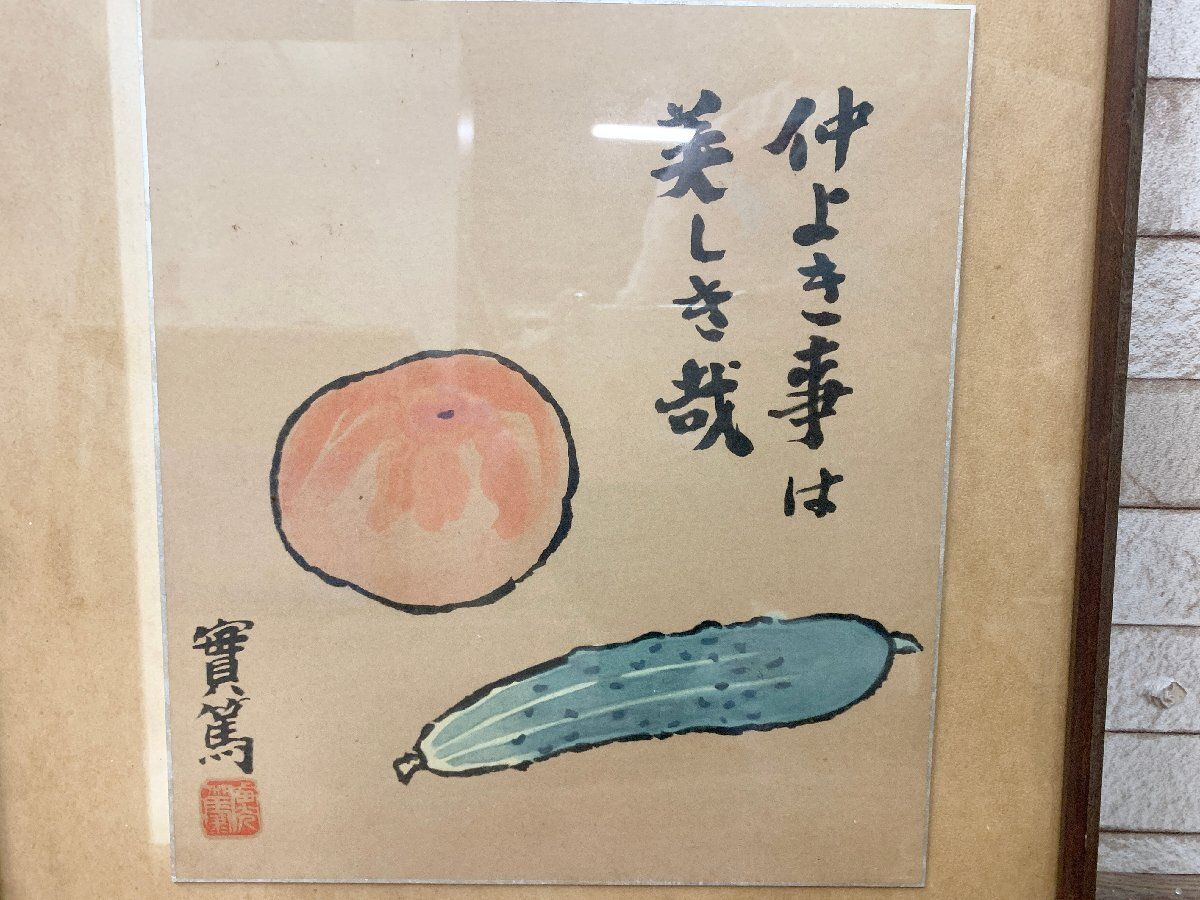 仲よき事は
美しき哉
實篤